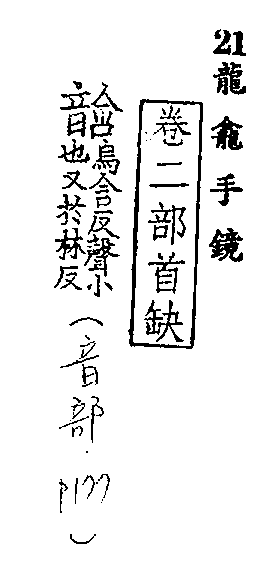 21龍龕手鏡
卷二部首缺
烏含反聲小
也又於林反
(音部.p177)